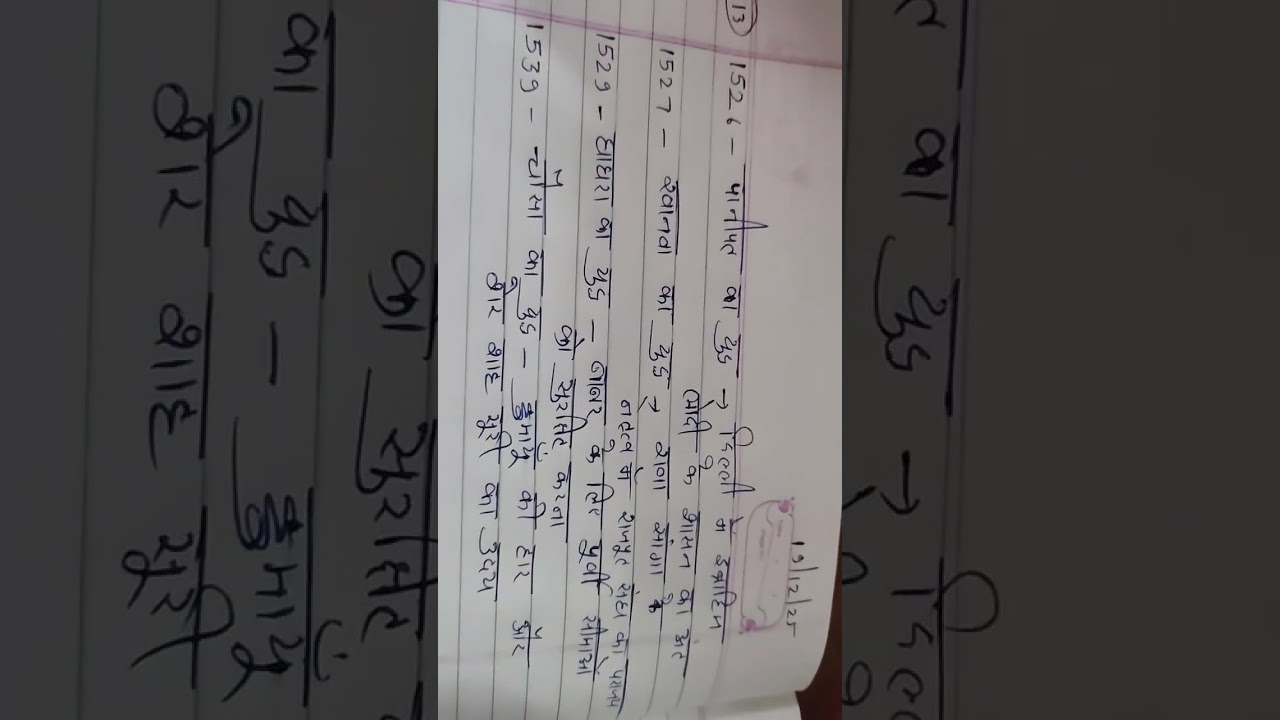 19/12/25
13
1526 - पानीपत का युद्ध → दिल्ली में इब्राहिम
लोदी के शासन का अंत
1527 - खानवा का युद्ध → राणा सांगा के
नेतृत्व में राजपूत संघ की
1529 - घाघरा का युद्ध - बाबर के लिए पूर्वी सीमाओं
को सुरक्षित करना
1539 - चौसा का युद्ध - हुमायूं की हार और
शेर शाह सूरी का उदय